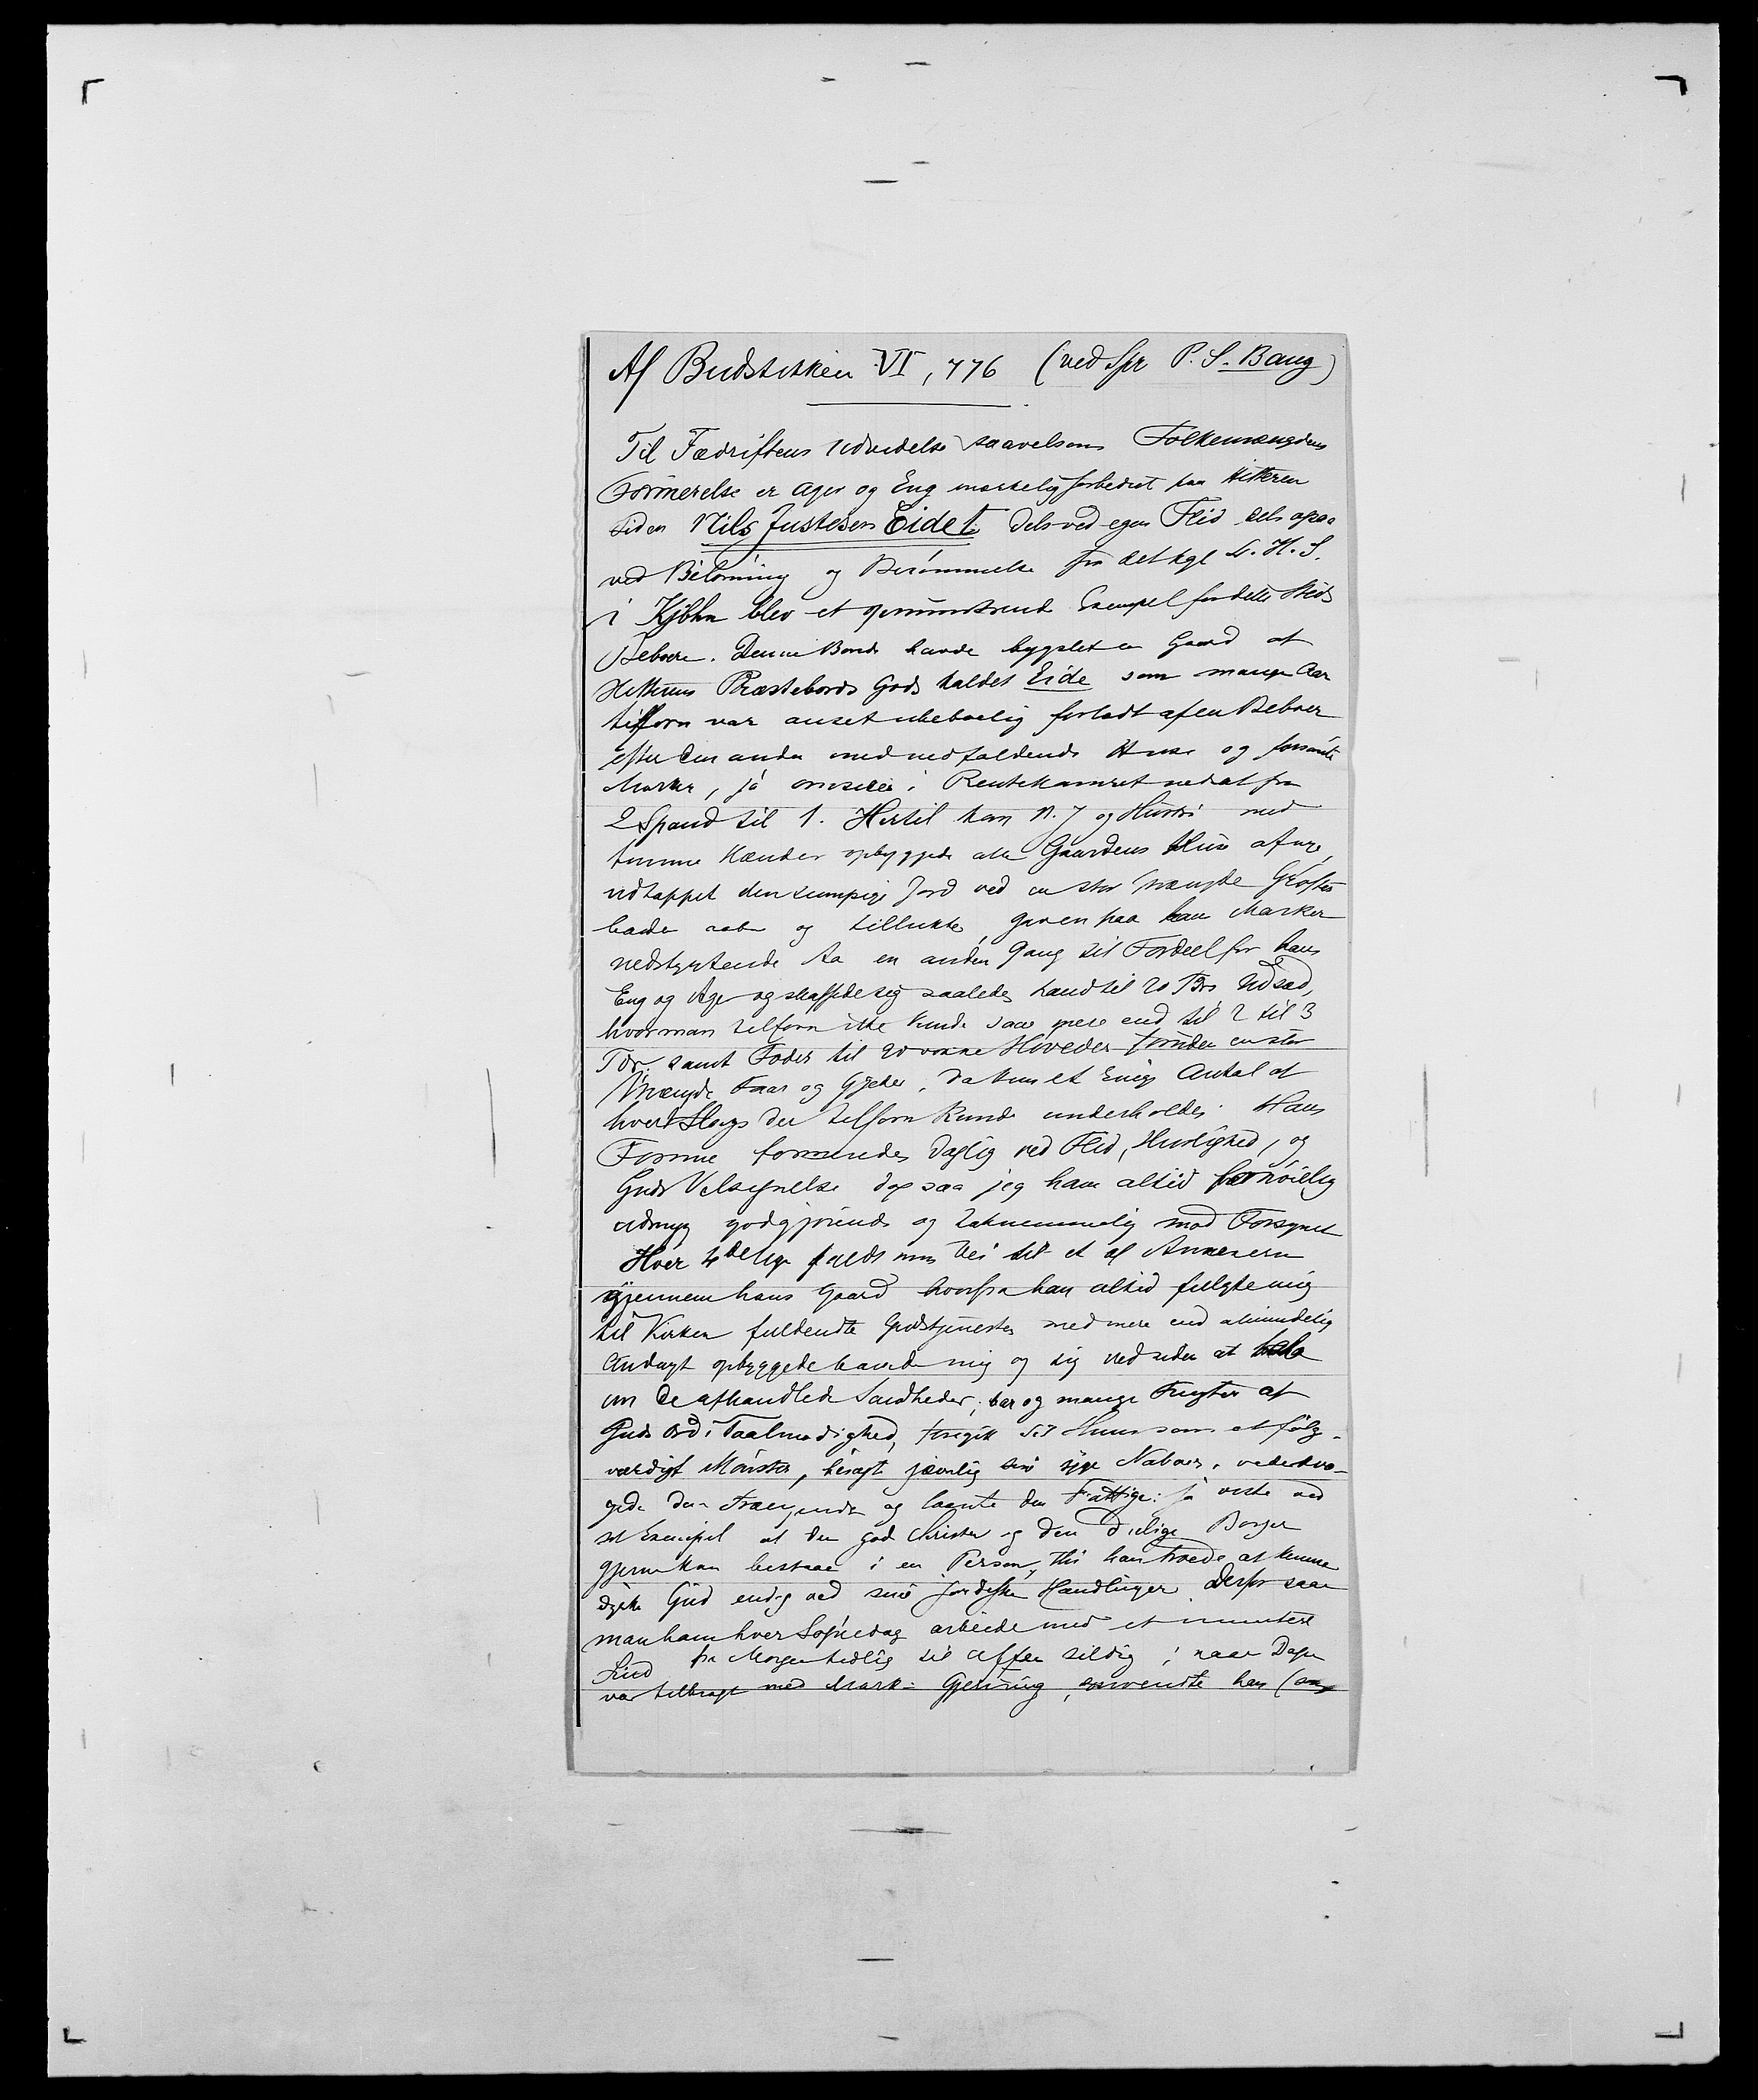 Af Budstikken VI, 776 (ved Spr P. S. Bang)
Til Fædriftens Udvidelse saavelsom Folkemængdens
Formerelse er Ager og Eng mærkelig forbedret paa Hitteren
siden Nils Justesen Eidet dels ved egen Flid dels ogsaa
ved Belønning og Berømmelse fra det kgl L. H. S.
i Kjbhn blev et opmuntrende Exempel for dette Steds
Beboere. Denne Bonde havde bygslet en Gaard af
Hitterens Præstebords Gods kaldet Eide som mange Aar
tilforn var anset ubeboelig forladt af en Beboer
efter den anden med nedfaldende Huse og forsømte
Marker, ja i Rentekamret nedsat fra
2 Spand til 1. Hertil kom N. J og Hustru med
tomme Hænder opbyggede alle Gaardens Huse af nye,
udtappet den sumpige Jord ved en stor Mængde Grøfter
baade aabne og tillukte, gav en paa hans Marker
nedstyrtende Aa en anden Gang til Fordeel for hans
Eng og Ager og skaffede sig saaledes Land til 20 Tdrs Udsæd,
hvor man tilforn ikke kunde saae mere end til 2 til 3
Tdr. samt Foder til 20 voxne Høveder foruden en stor
Mængde Faar og Gjeder, da kun et ringe Antal af
hvert Slags der tilforn kunde underholdes. Hans
Formue formeredes daglig ved Flid, Huslighed, og
Guds Velsignelse dog saa jeg ham altid fornøielig
ydmyg godgjørende og taknemmelig mod Forsynet
Hver 4de Uge faldt min Vei til et af Annexerne
gjennem hans Gaard hvorfra han altid fulgte mig
til Kirken fuldendte Gudstjenesten med mere end almindelig
Andagt opbyggede baade mig og sig ved siden at tale
om de afhandlede Sandheder, bar og mange Frugter af
Guds Ord i Taalmodighed, foregik sit Huus som et følg-
værdigt Mønster, besøgte jævnlig sine syge Naboer, vederkvæ-
gede den Trængende og laante den Fattige: ja viste ved
sit Exempel at den gode Christen og den duelige Borger
gjerne kan bestaae i en Person, thi han troede at kunne
dyrke Gud endog ved sine jordiske Handlinger. Derfor saae
man ham hver Søgnedag arbeide med et muntert
Sind fra Morgen tidlig til Aften sildig; naar Dagen
var tilbragt med Mark-Gjerning, anvendte han (